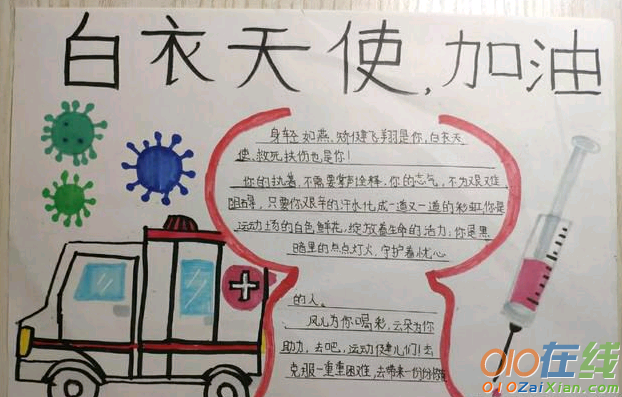 白衣天使,加油
身轻如燕,矫健飞翔是你,白衣天
使,救死扶伤也是你!
你的执着,不需要掌声诠释,你的志气,不为艰难
阻碍,只要你艰辛的汗水化成一道又一道的彩虹,你是
运动场的白色鲜花,绽放着生命的活力;你是黑
暗里的点点灯火,守护着忧心
的人。
风儿为你喝彩,云朵为你
助力,去吧,运动健儿们!去
克服一重重困难,去带来一份份
010在线
010ZaiXian.com